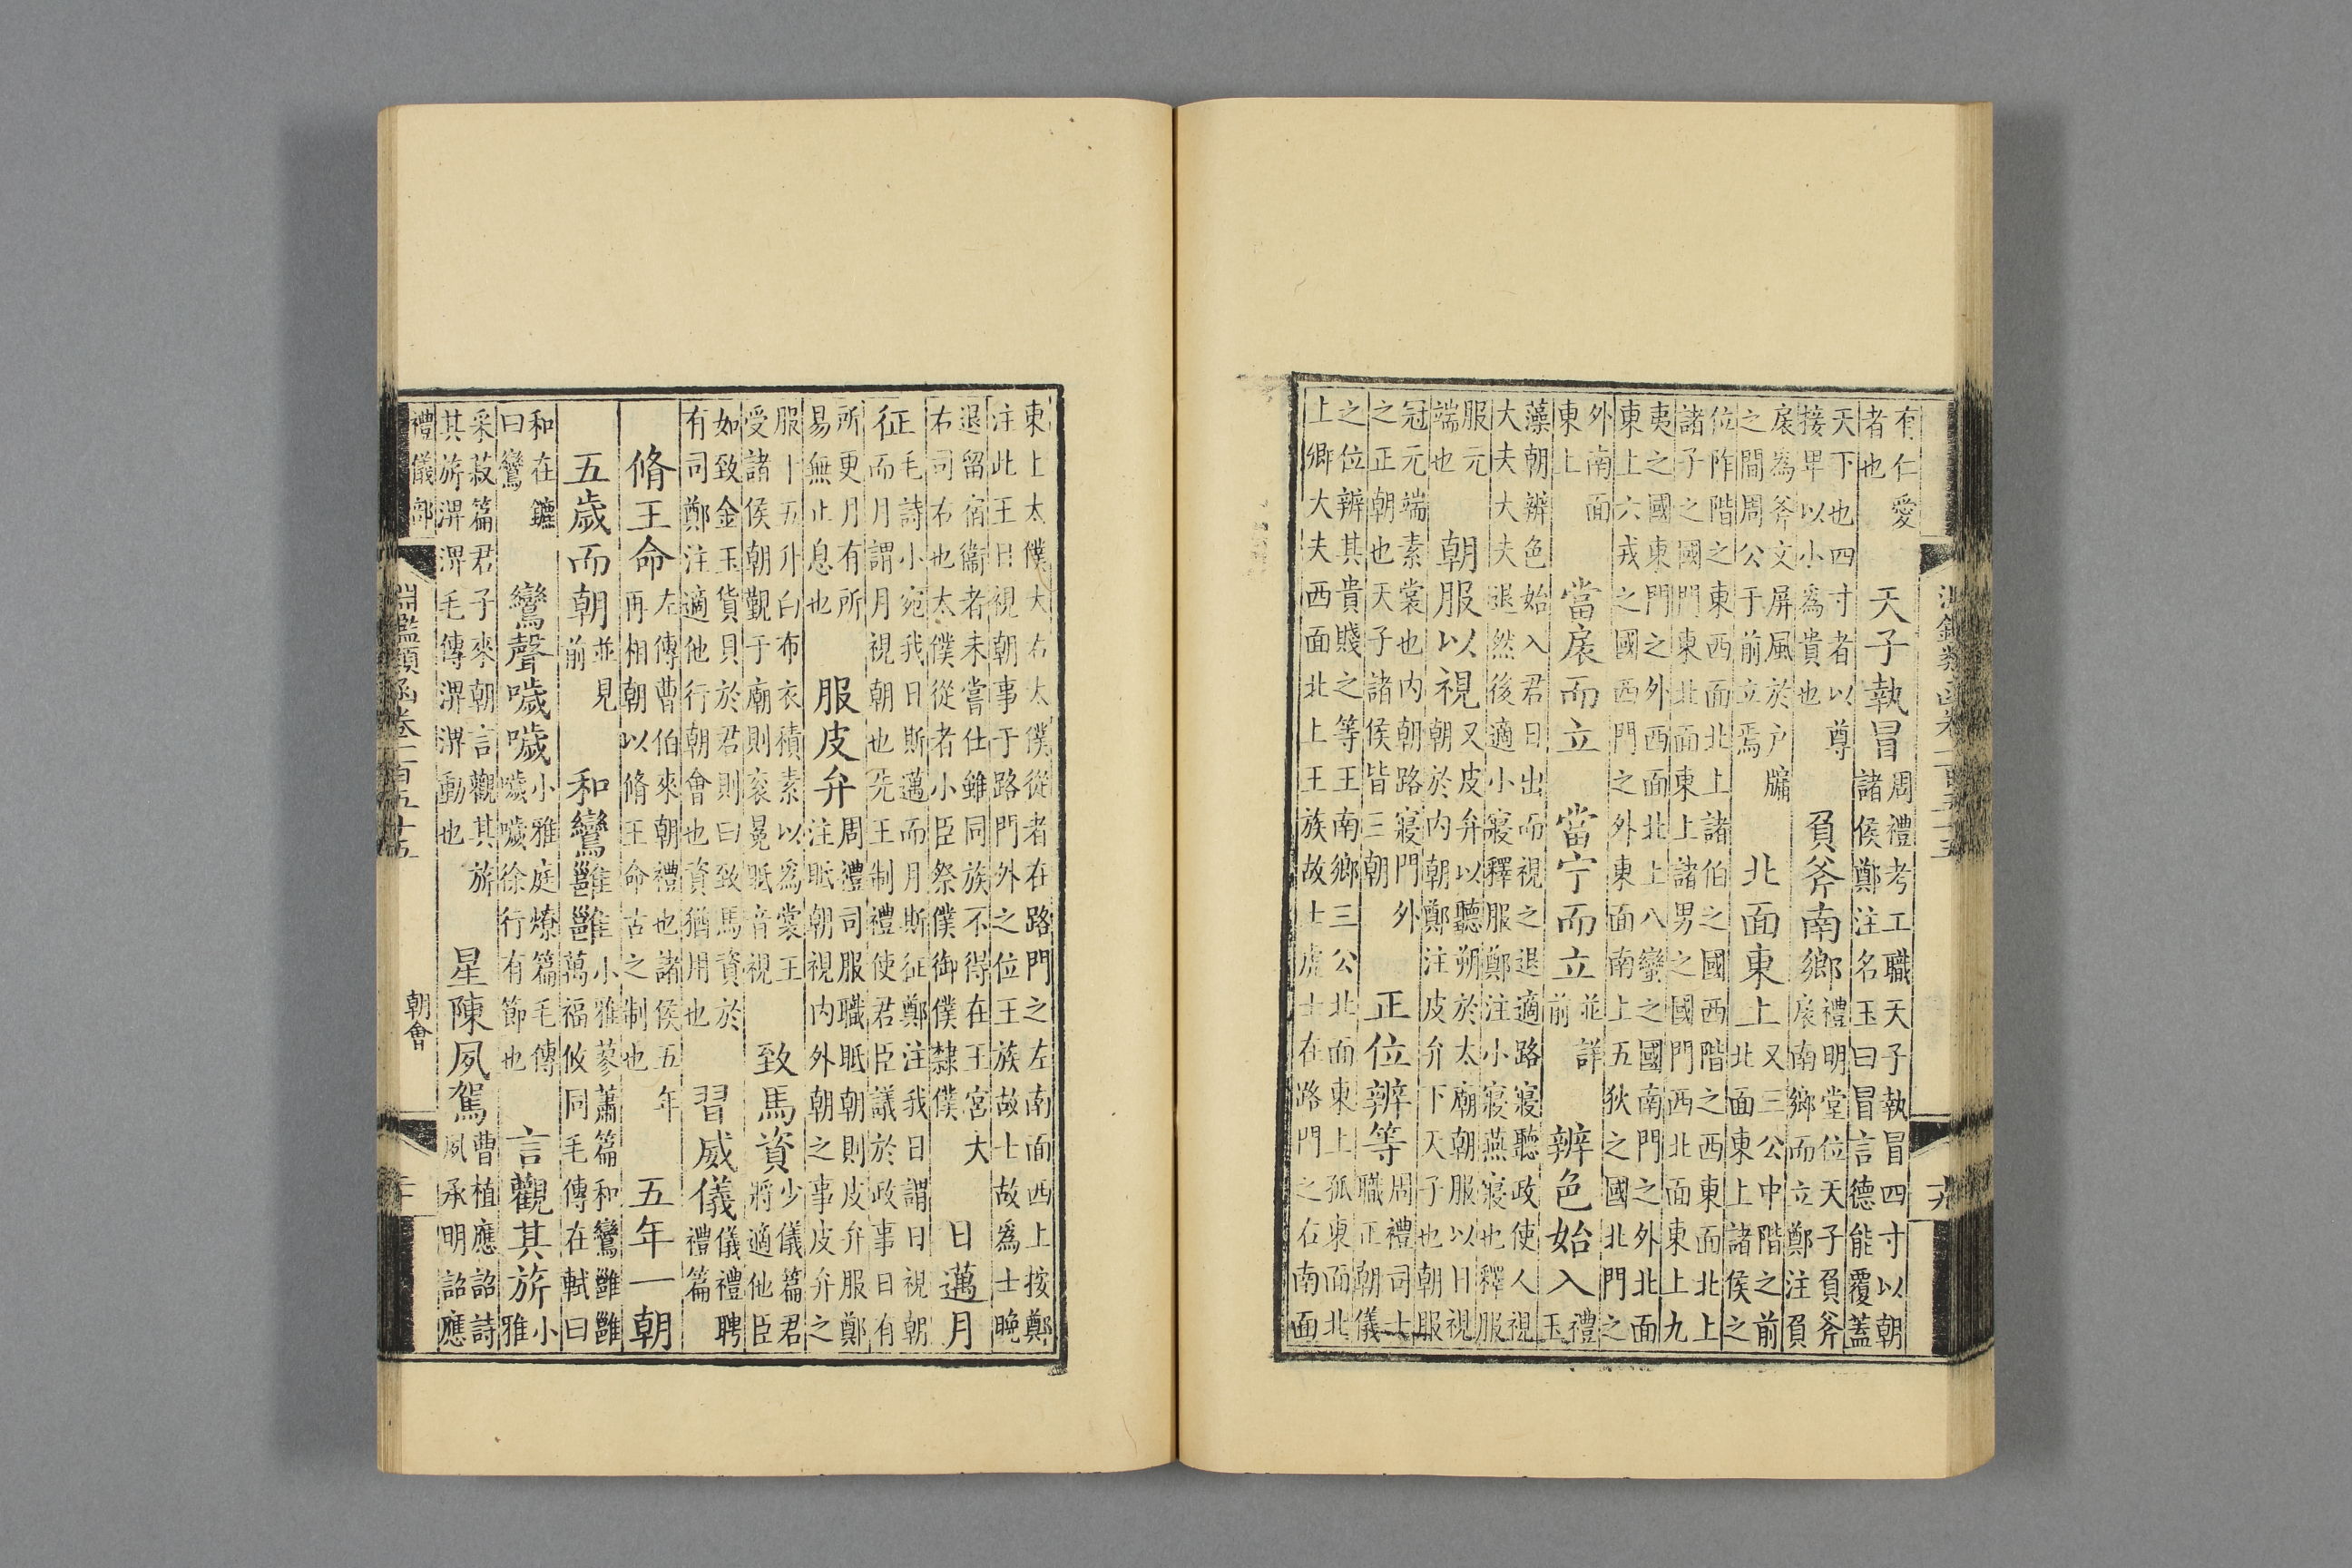 有仁愛者也 天子執冒 周禮考工職天子執冒四寸以朝諸侯鄭注名玉曰冒言德能覆蓋
天下也四寸者以尊接卑以小為貴也 負斧南鄉 禮明堂位天子負斧扆南鄉而立鄭注負
扆為斧文屏風於戶牖之間周公于前立焉 北面東上 又三公中階之前北面東上諸侯之
位阼階之東西面北上諸伯之國西階之西東面北上諸子之國門東北面東上諸男之國門西北面東上九
夷之國東門之外西面北上八蠻之國南門之外北面東上六戎之國西門之外東面南上五狄之國北門之
外南面東上 當扆而立 當宁而立 並詳前 辨色始入 禮玉
藻朝辨色始入君日出而視之退適路寢聽政使人視大夫大夫退然後適小寢釋服鄭注小寢燕寢也釋服
服元端也 朝服以視 又皮弁以聽朔於太廟朝服以日視朝於内朝鄭注皮弁下天子也朝服
冠元端素裳也内朝路寢門外之正朝也天子諸侯皆三朝 正位辨等 周禮司士職正朝儀
之位辨其貴賤之等王南鄉三公北面東上孤東面北上卿大夫西面北上王族故士虎士在路門之右南面
東上太僕大右太僕從者在路門之左南面西上按鄭注此王日視朝事于路門外之位王族故士故為士晚
退留宿衞者未嘗仕雖同族不得在王宮大右司右也太僕從者小臣祭僕御僕隸僕 日邁月
征 毛詩小宛我日斯邁而月斯征鄭注我日謂日視朝而月月謂月視朝也先王制禮使君臣議於政事日有
所更月有所易無止息也 服皮弁 周禮司服職眂朝則皮弁服鄭注眂朝視内外朝之事皮弁之
服十五升白布衣積素以為裳王受諸侯朝覲于廟則衮冕眂音視 致馬資 少儀篇君將適他臣
如致金玉貨貝於君則曰致馬資於有司鄭注適他行朝會也資猶用也 習威儀 儀禮聘禮篇
脩王命 左傳曹伯來朝禮也諸侯五年再相朝以脩王命古之制也 五年一朝
五歲而朝 並見前 和鸞雝雝 小雅蓼蕭篇和鸞雝雝萬福攸同毛傳在軾曰
和在鑣曰鸞 鸞聲噦噦 小雅庭燎篇毛傳噦噦徐行有節也 言觀其旂 小雅
采菽篇君子來朝言觀其旂其旂淠淠毛傳淠淠動也 星陳夙駕 曹植應詔詩夙承明詔應
禮儀部 淵鑑類函卷一百五十五 朝會